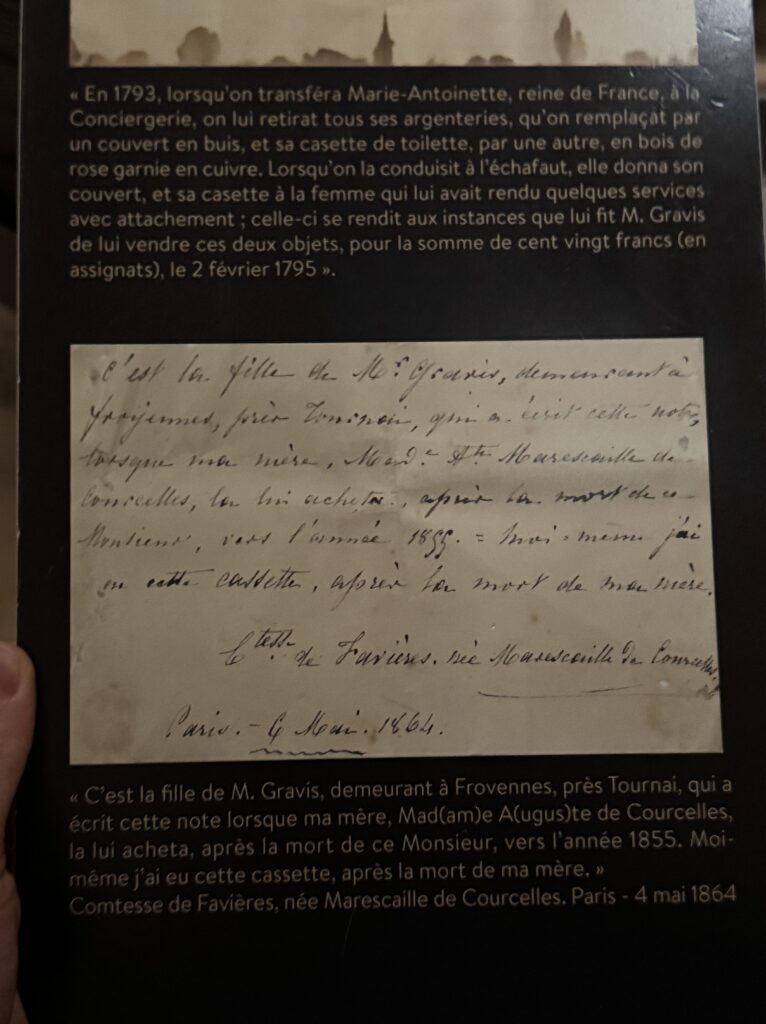 « En 1793, lorsqu'on transféra Marie-Antoinette, reine de France, à la
Conciergerie, on lui retirat tous ses argenteries, qu'on remplaçat par
un couvert en buis, et sa casette de toilette, par une autre, en bois de
rose garnie en cuivre. Lorsqu'on la conduisit à l'échafaut, elle donna son
couvert, et sa casette à la femme qui lui avait rendu quelques services
avec attachement ; celle-ci se rendit aux instances que lui fit M. Gravis
de lui vendre ces deux objets, pour la somme de cent vingt francs (en
assignats), le 2 février 1795 ».
c'est la fille de Mr Gravis, demeurant à
froyennes, près Tournai, qui a écrit cette note,
lorsque ma mère, Made Ate Marescaille de
Courcelles, la lui acheta, après la mort de ce
Monsieur, vers l'année 1855. = moi-même j'ai
eu cette cassette, après la mort de ma mère.
Ctesse de Favières. née Marescaille de Courcelles
Paris. - 6 Mai. 1864.
« C'est la fille de M. Gravis, demeurant à Frovennes, près Tournai, qui a
écrit cette note lorsque ma mère, Mad(am)e A(ugus)te de Courcelles,
la lui acheta, après la mort de ce Monsieur, vers l'année 1855. Moi-
même j'ai eu cette cassette, après la mort de ma mère. »
Comtesse de Favières, née Marescaille de Courcelles. Paris - 4 mai 1864